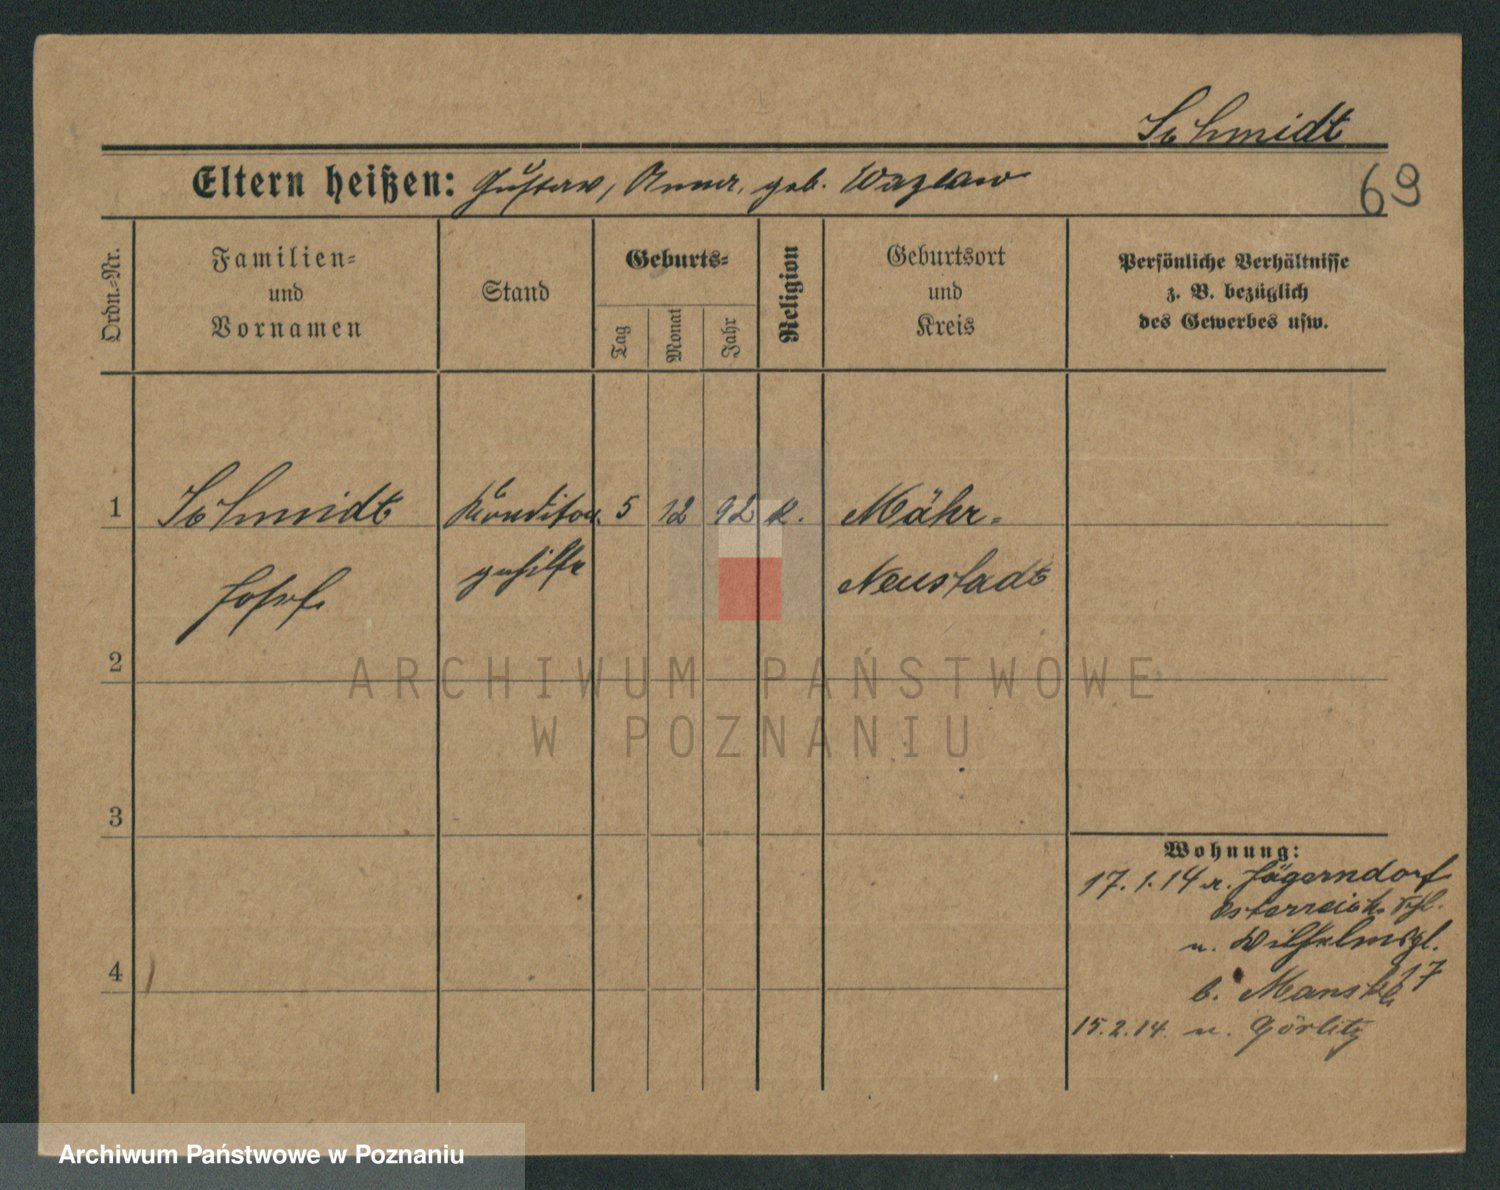 Schmidt
Eltern heißen: Gustav, Anna, geb. Wazlaw
69
Ordn.-Nr.
Familien-
und
Vornamen
Stand
Geburts-
Tag
Monat
Jahr
Religion
Geburtsort
und
Kreis
Persönliche Verhältnisse
z. B. bezüglich
des Gewerbes usw.
1 Schmidt Konditor 5 12 92 k. Mähr.
Josef gehilfe Neustadt
2
ARCHIWUM PAŃSTWOWE
W POZNANIU
3
Wohnung:
17.1.14 v. Jägerndorf
Österreich. Schl.
n. Wilhelmspl. 17
b. Manski
4
15.2.14. n. Görlitz
Archiwum Państwowe w Poznaniu